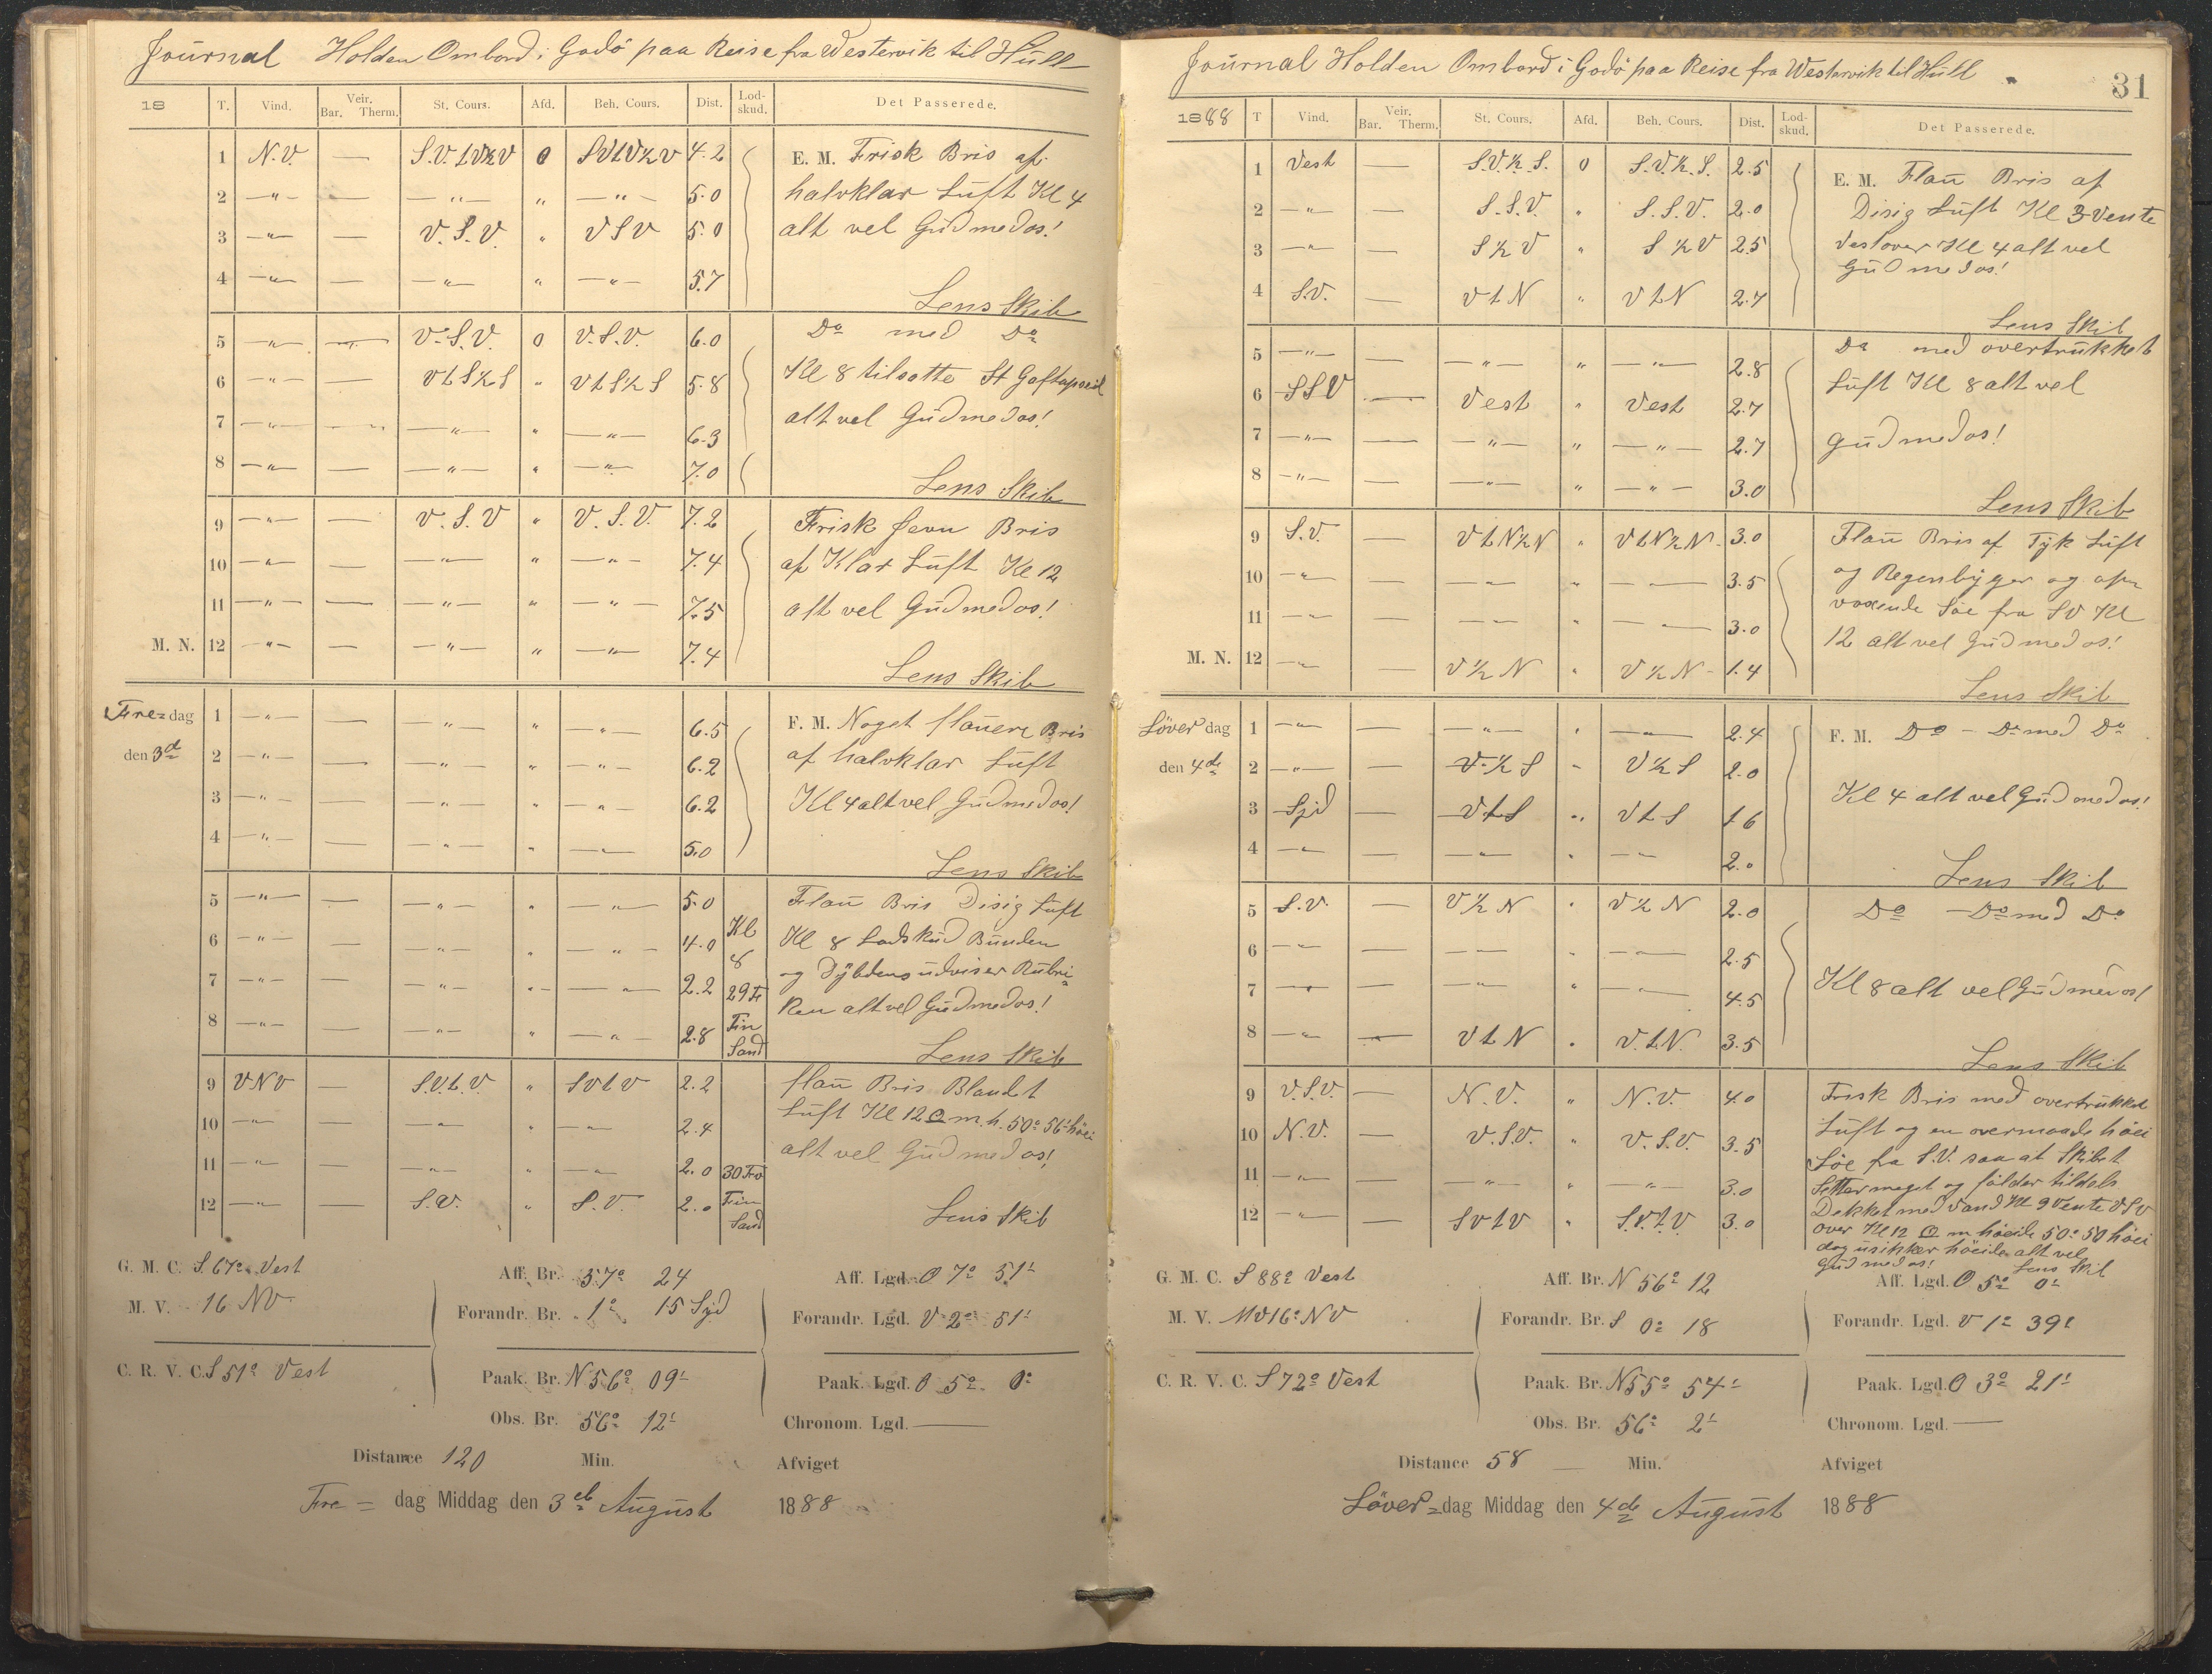 Journal Holden Ombord i Godö paa Reise fra Westervik til Hull
18 T. Vind. Veir. Bar. Therm. St. Cours. Afd. Beh. Cours. Dist. Lod-skud. Det Passerede.
1 N.V. — S.V.t.V½V 0 SVtV½V 4.2 E. M. Frisk Bris af
2 —"— — —"— " —"— 5.0 halvklar Luft Kl 4
3 —"— — V.S.V. " VSV 5.0 alt vel Gud med os!
4 —"— — —"— " —"— 5.7
Lens Skib
5 —"— — V.S.V. 0 V.S.V. 6.0 Do med Do
6 —"— — VtS½S " VtS½S 5.8 Kl 8 tilsatte St
7 —"— — —"— " —"— 6.3 alt vel Gud med os!
8 —"— — —"— " —"— 7.0
Lens Skib
9 —"— — V.S.V " V.S.V. 7.2 Frisk Jevn Bris
10 —"— — —"— " —"— 7.4 af Klar Luft Kl 12
11 —"— — —"— " —"— 7.5 alt vel Gud med os!
M. N. 12 —"— — —"— " —"— 7.4
Lens Skib
Fre=dag 1 —"— — —"— " —"— 6.5 F. M. Noget flauere Bris
den 3d 2 —"— — —"— " —"— 6.2 af halvklar Luft
3 —"— — —"— " —"— 6.2 Kl 4 alt vel Gud med os!
4 —"— — —"— " —"— 5.0
Lens Skib
5 —"— — —"— " —"— 5.0 Flau Bris Disig Luft
6 —"— — —"— " —"— 4.0 Kl 8 Kl 8 Lodskud Bunden
7 —"— — —"— " —"— 2.2 29 Fv og Dybden udviser Rubri=
8 —"— — —"— " —"— 2.8 Fin Sand ken alt vel Gud med os!
Lens Skib
9 VNV — S.V.t.V " SVtV 2.2 flau Bris Blandet
10 —"— — —"— " —"— 2.4 Luft Kl 12 m. h. 50° 56' höi
11 —"— — —"— " —"— 2.0 30 Fv alt vel Gud med os!
12 —"— — S.V. " S.V. 2.0 Fin Sand
Lens Skib
G. M. C. S. 67° Vest Aff. Br. 57° 24 Aff. Lgd. O 7° 51'
M. V. 16 NV Forandr. Br. 1° 15 Syd Forandr. Lgd. V 2° 51'
C. R. V. C. S 51° Vest Paak. Br. N 56° 09' Paak. Lgd. O 5° 0'
Obs. Br. 56° 12' Chronom. Lgd. —
Distance 120 Min. Afviget
Fre= dag Middag den 3d August 1888
Journal Holden Ombord i Godö paa Reise fra Westervik til Hull
31
1888 T Vind. Veir. Bar. Therm. St. Cours. Afd. Beh. Cours. Dist. Lod-skud. Det Passerede.
1 Vest — S.V.½.S. 0 S.V.½.S. 2.5 E. M. Flau Bris af
2 —"— — S.S.V. " S.S.V. 2.0 Disig Luft Kl 3 Vente
3 —"— — S½V " S½V 2.5 Vestover Kl 4 alt vel
4 S.V. — VtN " VtN 2.7 Gud med os!
Lens Skib
5 —"— — —"— " —"— 2.8 Do med overtrukket
6 SSV — Vest " Vest 2.7 Luft Kl 8 alt vel
7 —"— — —"— " —"— 2.7 Gud med os!
8 —"— — —"— " —"— 3.0
Lens Skib
9 S.V. — VtN½N " VtN½N 3.0 Flau Bris af Tyk Luft
10 —"— — —"— " —"— 3.5 og Regenbyger og op=
11 —"— — —"— " —"— 3.0 voxende Söe fra SV Kl
M. N. 12 —"— — V½N " V½N 1.4 12 alt vel Gud med os!
Lens Skib
Löverdag 1 —"— — —"— " —"— 2.4 F. M. Do — Do med Do
den 4de 2 —"— — V½S " V½S 2.0
3 Syd — VtS " VtS 1.6 Kl 4 alt vel Gud med os!
4 —"— — —"— " —"— 2.0
Lens Skib
5 S.V. — V½N " V½N 2.0 Do — Do med Do
6 —"— — —"— " —"— 2.5
7 —"— — —"— " —"— 4.5 Kl 8 alt vel Gud med os!
8 —"— — VtN " V.t.N. 3.5
Lens Skib
9 V.S.V. — N.V. " N.V. 4.0 Frisk Bris med overtrukket
10 N.V. — V.S.V. " V.S.V. 3.5 Luft og en overmaade höi
11 —"— — —"— " —"— 3.0 Söe fra S.V. saa at Skibet
12 —"— — SVtV " S.V.t.V 3.0 Setter meget og falder tildels
Dekket med Vand Kl 9 Vente VSV
over Kl 12 m höide 50° 50 höi
dog usikker höide alt vel
Gud med os! Lens Skib
G. M. C. S 88° Vest Aff. Br. N 56° 12 Aff. Lgd. O 5° 0'
M. V. MV 16° NV Forandr. Br. S 0° 18 Forandr. Lgd. V 1° 39'
C. R. V. C. S 72° Vest Paak. Br. N 55° 54' Paak. Lgd. O 3° 21'
Obs. Br. 56° 2' Chronom. Lgd. —
Distance 58 — Min. Afviget
Löver=dag Middag den 4de August 1888